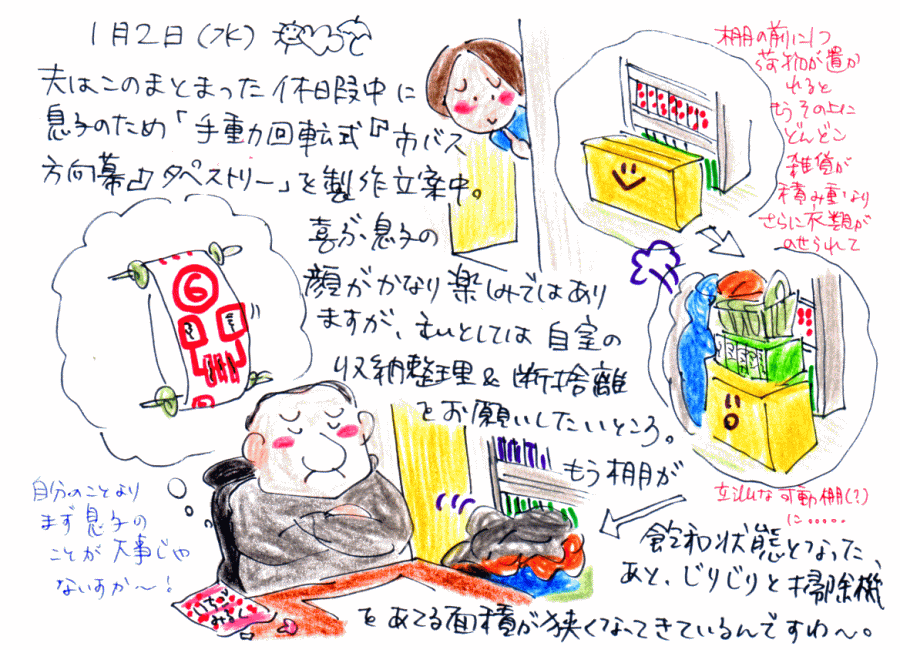 1月2日(水)
夫はこのまとまった休日暇中に
息子のため「手動回転式『市バス
方向幕』タペストリー」を製作立案中。
喜ぶ息子の
顔がかなり楽しみではあり
ますが、むいとしては自室の
収納整理&断捨離
をお願いしたいところ。
もう棚が
飽和状態となった、
あと、じりじりと掃除機
をあてる面積が狭くなってきているんですわ〜。
棚の前に1つ
荷物が置か
れると
もうその上に
どんどん
雑貨が
積み重なり
さらに衣類が
のせられて
立派な可動棚(?)
に……
6
自分のことより
まず息子の
ことが大事じゃ
ないすか〜!
いちご
みるく